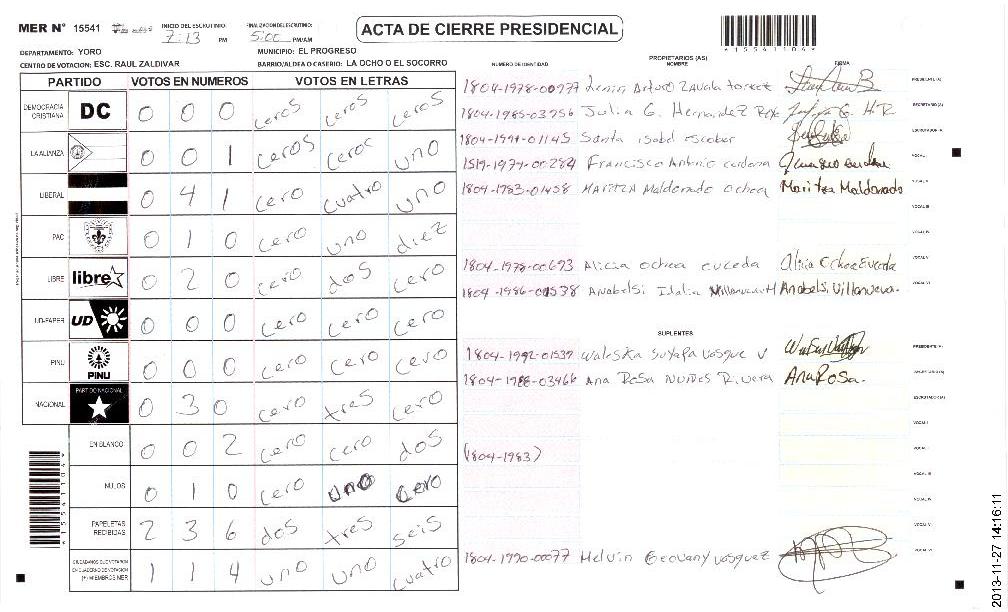 MER N° 15541
INICIO DEL ESCRUTINIO: 7:13 PM
FINALIZACION DEL ESCRUTINIO: 5:00 PM/AM
ACTA DE CIERRE PRESIDENCIAL
*15541104*
DEPARTAMENTO: YORO
MUNICIPIO: EL PROGRESO
CENTRO DE VOTACION: ESC. RAUL ZALDIVAR
BARRIO/ALDEA O CASERIO: LA OCHO O EL SOCORRO
PARTIDO VOTOS EN NUMEROS VOTOS EN LETRAS
DEMOCRACIA CRISTIANA DC 0 0 0 ceros ceros ceros
LA ALIANZA 0 0 1 ceros ceroc uno
LIBERAL 0 4 1 cero cuatro uno
PAC 0 1 0 cero uno diez
LIBRE libre 0 2 0 cero dos cero
UD-FAPER UD 0 0 0 cero cero cero
PINU PINU 0 0 0 cero cero cero
NACIONAL PARTIDO NACIONAL 0 3 0 cero tres cero
EN BLANCO 0 0 2 cero cero dos
NULOS 0 1 0 cero uno cero
PAPELETAS RECIBIDAS 2 3 6 dos tres seis
CIUDADANOS QUE VOTARON EN CUADERNO DE VOTACION (+) MIEMBROS MER 1 1 4 uno uno cuatro
PROPIETARIOS (AS)
NUMERO DE IDENTIDAD NOMBRE FIRMA
1804-1978-00777 Lenin Arturo Zavala PRESIDENTE (A)
1804-1985-03756 Julia G. Hernandez SECRETARIO (A)
1804-1991-01145 Santa isabel escobar ESCRUTADOR (A)
1519-1979-00284 Francisco Antonio cardona VOCAL I
1804-1983-01458 MARITZA Maldonado ochoa Maritza Maldonado VOCAL II
VOCAL III
VOCAL IV
1804-1978-00693 Alicia ochoa euceda Alicia Ochoa Euceda VOCAL V
1804-1986-01538 Anabelsi Idalia Villanueva Anabelsi Villanueva. VOCAL VI
SUPLENTES
1804-1992-01537 Waleska Suyapa vasque v PRESIDENTE (A)
1804-1988-03466 Ana Rosa Nuñes Rivera Ana Rosa. SECRETARIO (A)
ESCRUTADOR (A)
VOCAL I
(1804-1983) VOCAL II
VOCAL III
VOCAL IV
VOCAL V
1804-1990-00077 Melvin Geovany vasquez VOCAL VI
*15541104*
2013-11-27 14:16:11